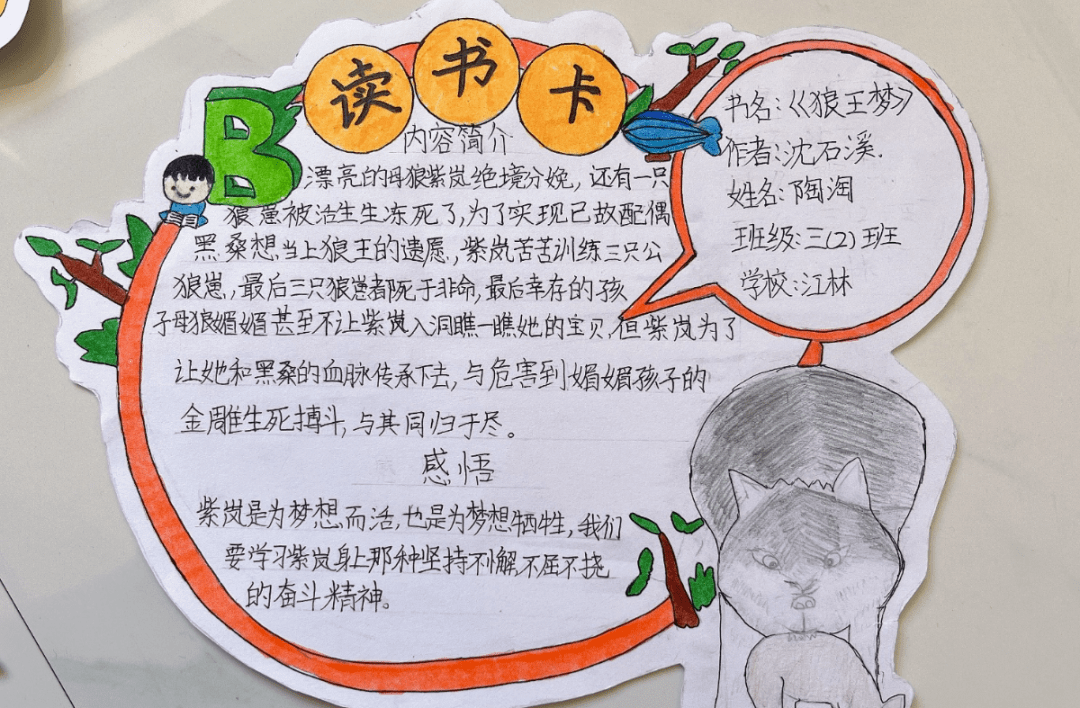 读书卡
B
内容简介
漂亮的母狼紫岚绝境分娩，还有一只
狼崽被活生生冻死了，为了实现已故配偶
黑桑想当上狼王的遗愿，紫岚苦苦训练三只公
狼崽，最后三只狼崽都死于非命，最后幸存的孩
子母狼媚媚甚至不让紫岚入洞瞧一瞧她的宝贝，但紫岚为了
让她和黑桑的血脉传承下去，与危害到媚媚孩子的
金雕生死搏斗，与其同归于尽。
感悟
紫岚是为梦想而活，也是为梦想牺牲，我们
要学习紫岚身上那种坚持不懈，不屈不挠
的奋斗精神。
书名：《狼王梦》
作者：沈石溪.
姓名：陶淘
班级：三(2)班
学校：江林